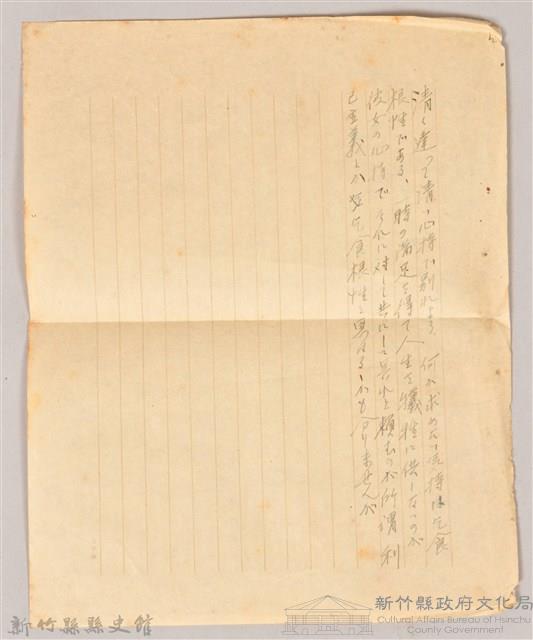 清く逢って清い心持で別れよう、何か求めたい気持は乞食
根性である、一時の満足を得て人生を犠牲に供しないのが
彼女の心情でそれに対して共にして呉れと頼むのが所謂利
己主義とか 乞食根性と異なるかも分りませんが
新竹縣縣史館
新竹縣政府文化局
Cultural Affairs Bureau of Hsinchu
County Government